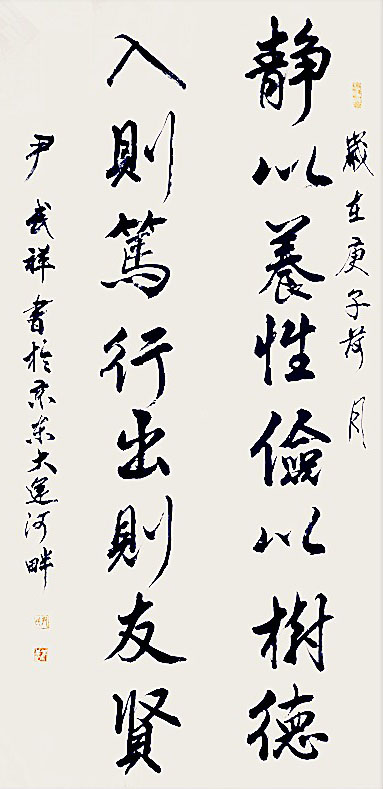 歲在庚子荷月
静以養性儉以樹德
入則篤行出則友賢
尹武祥書於京東大運河畔